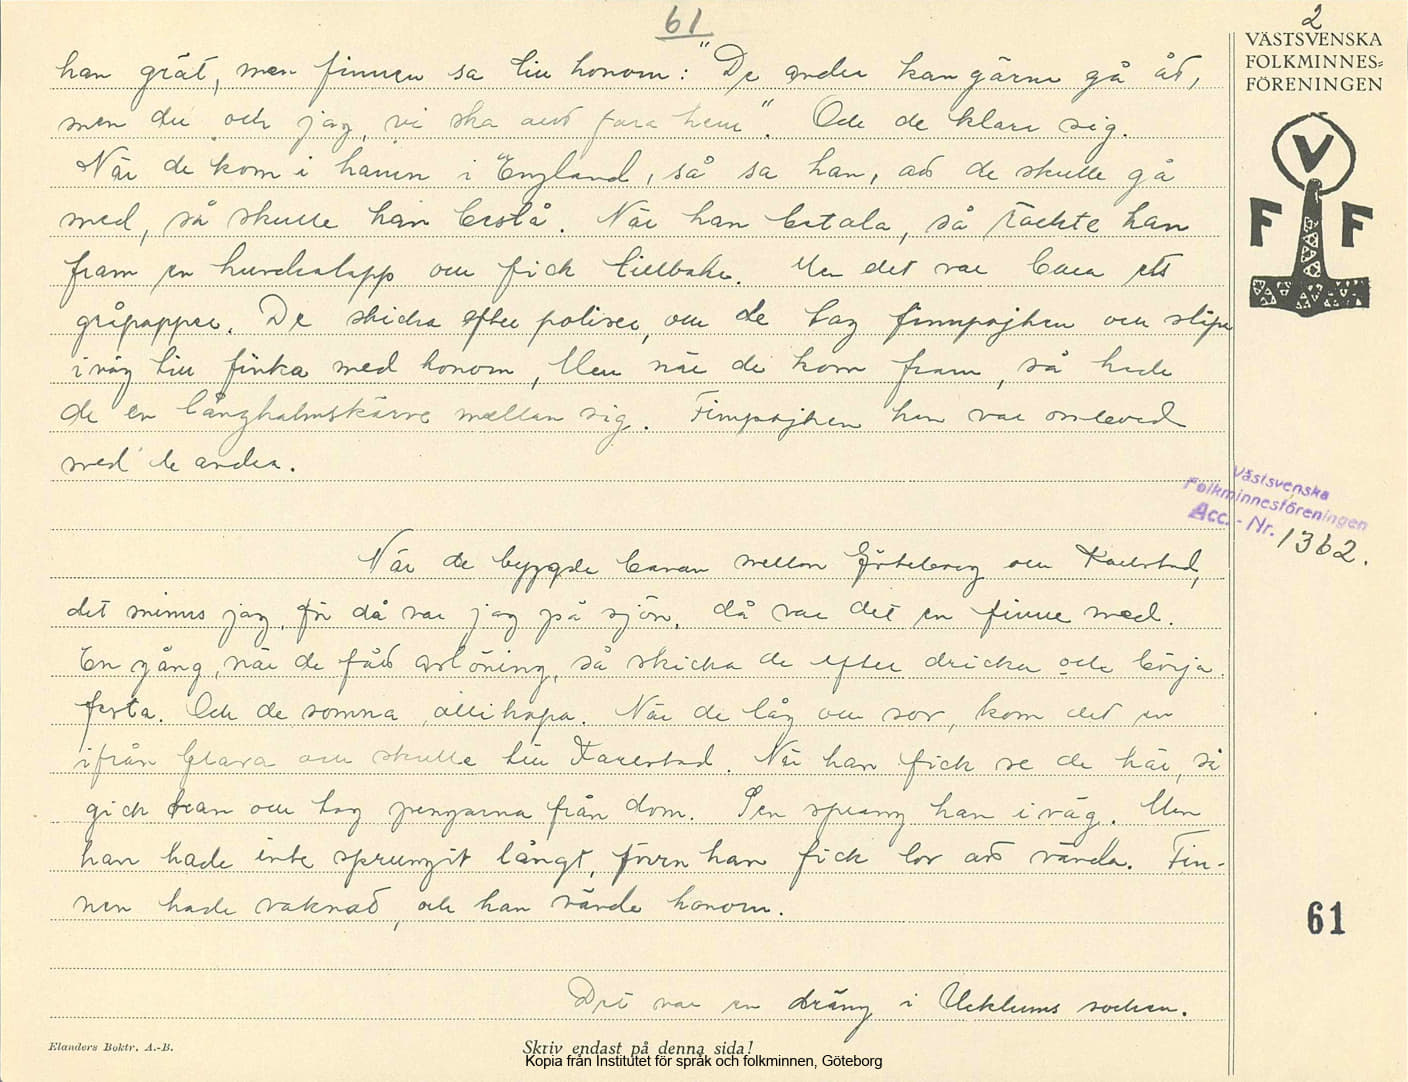 61
2
VÄSTSVENSKA
FOLKMINNES=
FÖRENINGEN
V
F F
han grät, men finnen sa till honom: "De andra kan gärna gå åt,
men du och jag, vi ska allt fara hem". Och de klara sig.
När de kom i hamn i England, så sa han, att de skulle gå
med, så skulle han bestå. När han betala, så räckte han
fram en hundralapp och fick tillbaka. Men det var bara ett
gråpapper. De skicka efter poliser, och de tog finnpojken och släpa
iväg till finka med honom, Men när de kom fram, så hade
de en långhalmskärve mellan sig. Finnpojken han var
med de andra.
Västsvenska
Folkminnesföreningen
Acc.-Nr. 1362.
När de byggde banan mellan Göteborg och Karlstad,
det minns jag, för då var jag på sjön, då var det en finne med.
En gång, när de fått avlöning, så skicka de efter dricka och börja
festa. Och de somna allihopa. När de låg och sov, kom det en
ifrån Glava och skulle till Karlstad. När han fick se de här, så
gick han och tog pengarna från dom. Sen sprang han iväg. Men
han hade inte sprungit långt, förrn han fick lov att vända. Fin-
nen hade vaknat, och han vände honom.
61
Det var en dräng i Ucklums socken.
Elanders Boktr. A.-B.
Skriv endast på denna sida!
Kopia från Institutet för språk och folkminnen, Göteborg